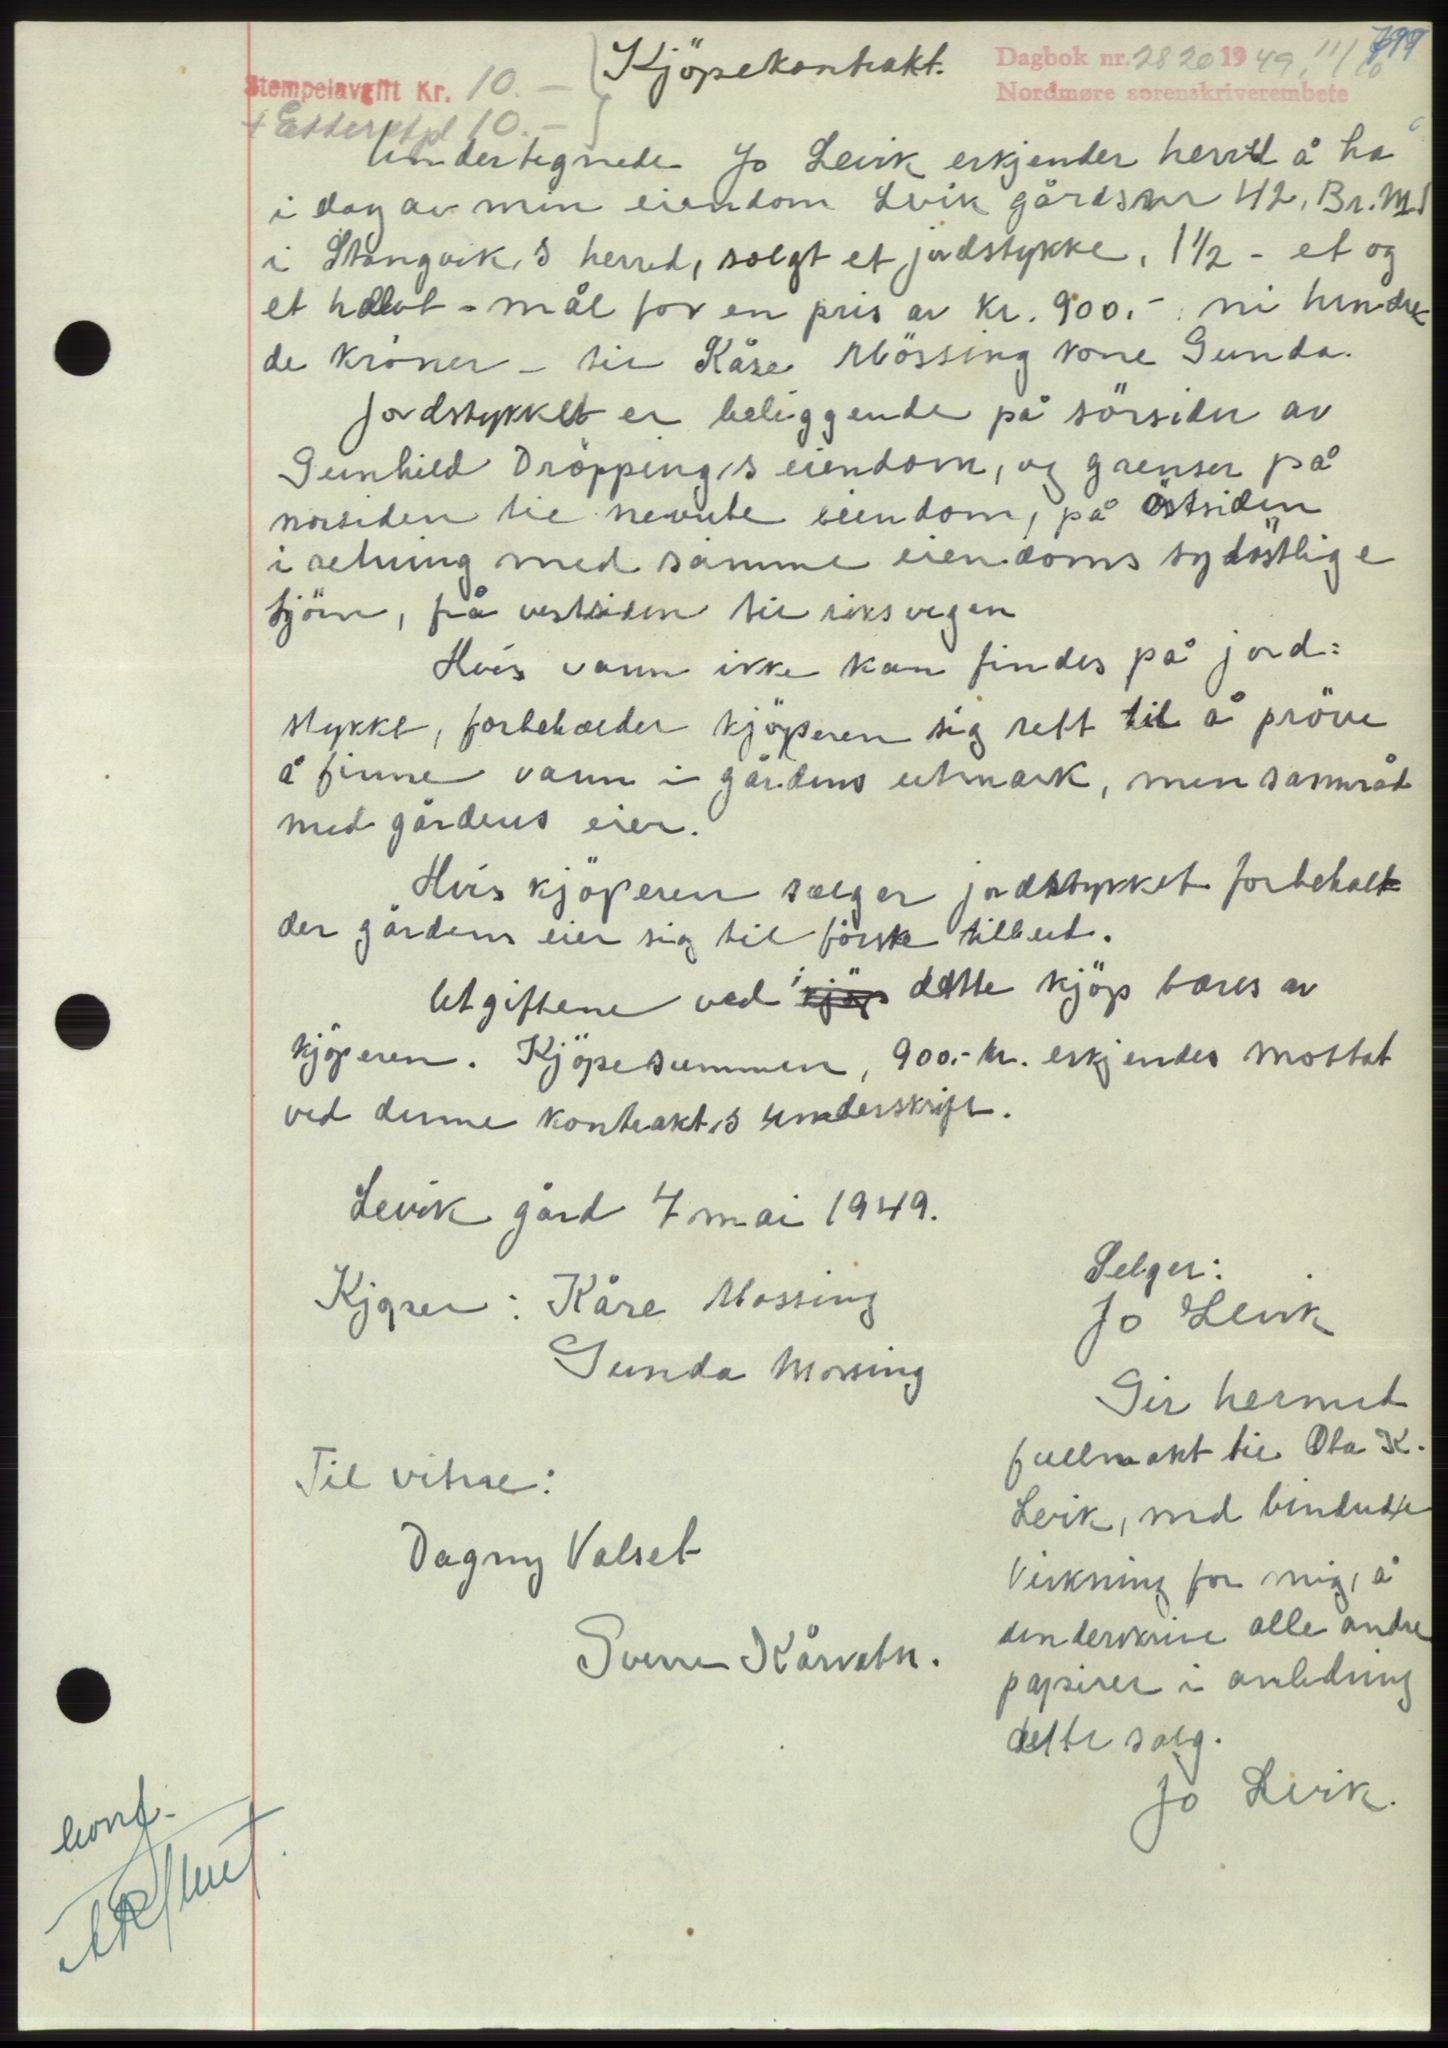 799
Kjöpekontrakt.
Dagbok nr. 2820 1949, 11/10
Nordmøre sorenskriverembete
Stempelavgift Kr. 10.-
+ 10.-
Undertegnede Jo Levik erkjender herved å ha
i dag av min eiendom Levik gårdsnr 42, Br.
i Stangvik,s herred, solgt et jordstykke, 1 1/2 - et og
et halvt - mål for en pris av Kr. 900.- ni hundre
de kroner - til Kåre Mössing kone Gunda.
Jordstykket er beliggende på sörsiden av
Gunhild Dröpping,s eiendom, og grenser på
norsiden til nevnte eiendom, på östsiden
i retning med samme eiendoms sydöstlige
hjörn, på vestsiden til riksvegen
Hvis vann ikke kan findes på jord=
stykke, forbeholder kjöperen sig rett til å pröve
å finne vann i gårdens utmark, men samråd
med gårdens eier.
Hvis kjöperen selger jordstykket forbehol
der gårdens eier sig til förste tilbud.
Utgiftene ved kjöp dette kjöp bæres av
kjöperen. Kjöpesummen, 900.- kr. erkjendes mottat
ved denne kontrakt,s underskrift.
Levik gård 7 mai 1949.
Selger:
Kjøper: Kåre Mossing
Jo Levik
Gunda Mossing
Gir hermed
fullmakt til Ola K.
Levik, med bindende
virkning for mig, å
underskrive alle andre
papirer i anledning
dette salg.
Jo Levik.
Til vitne:
Dagny Valset
Sverre Kårvatn.
konf.